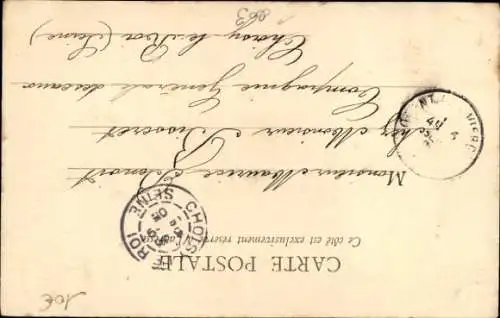 CARTE POSTALE
Ce côté est exclusivement réservé à l'adresse
Monsieur Maurice
Chez Monsieur
Compagnie Générale des eaux
Choisy le Roi (Seine)
CHOISY LE ROI
SEINE
863
10€